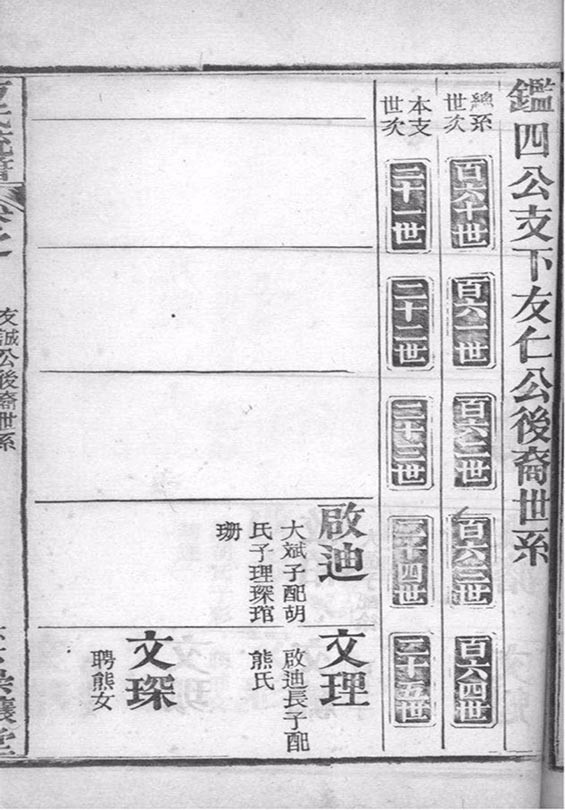 鑑四公支下友仁公後裔世系
總系世次
百六十世
百六一世
百六二世
百六三世
百六四世
本支世次
二十一世
二十二世
二十三世
二十四世
二十五世
啟迪
大斌子配胡
氏子理琛琯
珊
文理
啟迪長子配
熊氏
文琛
聘熊女
友誠公後裔世系